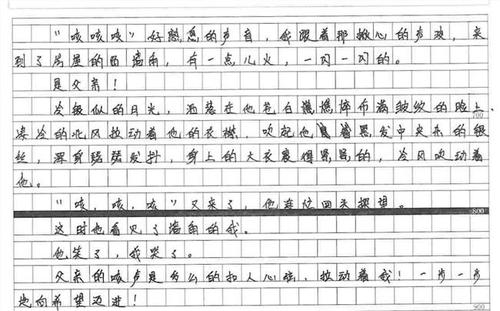 “咳咳咳”好熟悉的声音，我跟着那揪心的声波，来
到了房屋的西墙角，有一点儿火，一闪一闪的。
是父亲！
冷银似的月光，洒落在他苍白憔悴布满皱纹的脸上，
凛冷的北风拉动着他的衣襟，吹起他黑发中夹杂的银
丝，浑身瑟瑟发抖，身上的大衣裹得紧紧的，冷风吹动着
他。
700
“咳，咳，咳”又来了，他连忙回头探望。
800
这时他看见了墙角的我。
他笑了，我哭了。
父亲的咳声是多么的扣人心弦，拉动着我！一步一步
地向希望迈进！
900